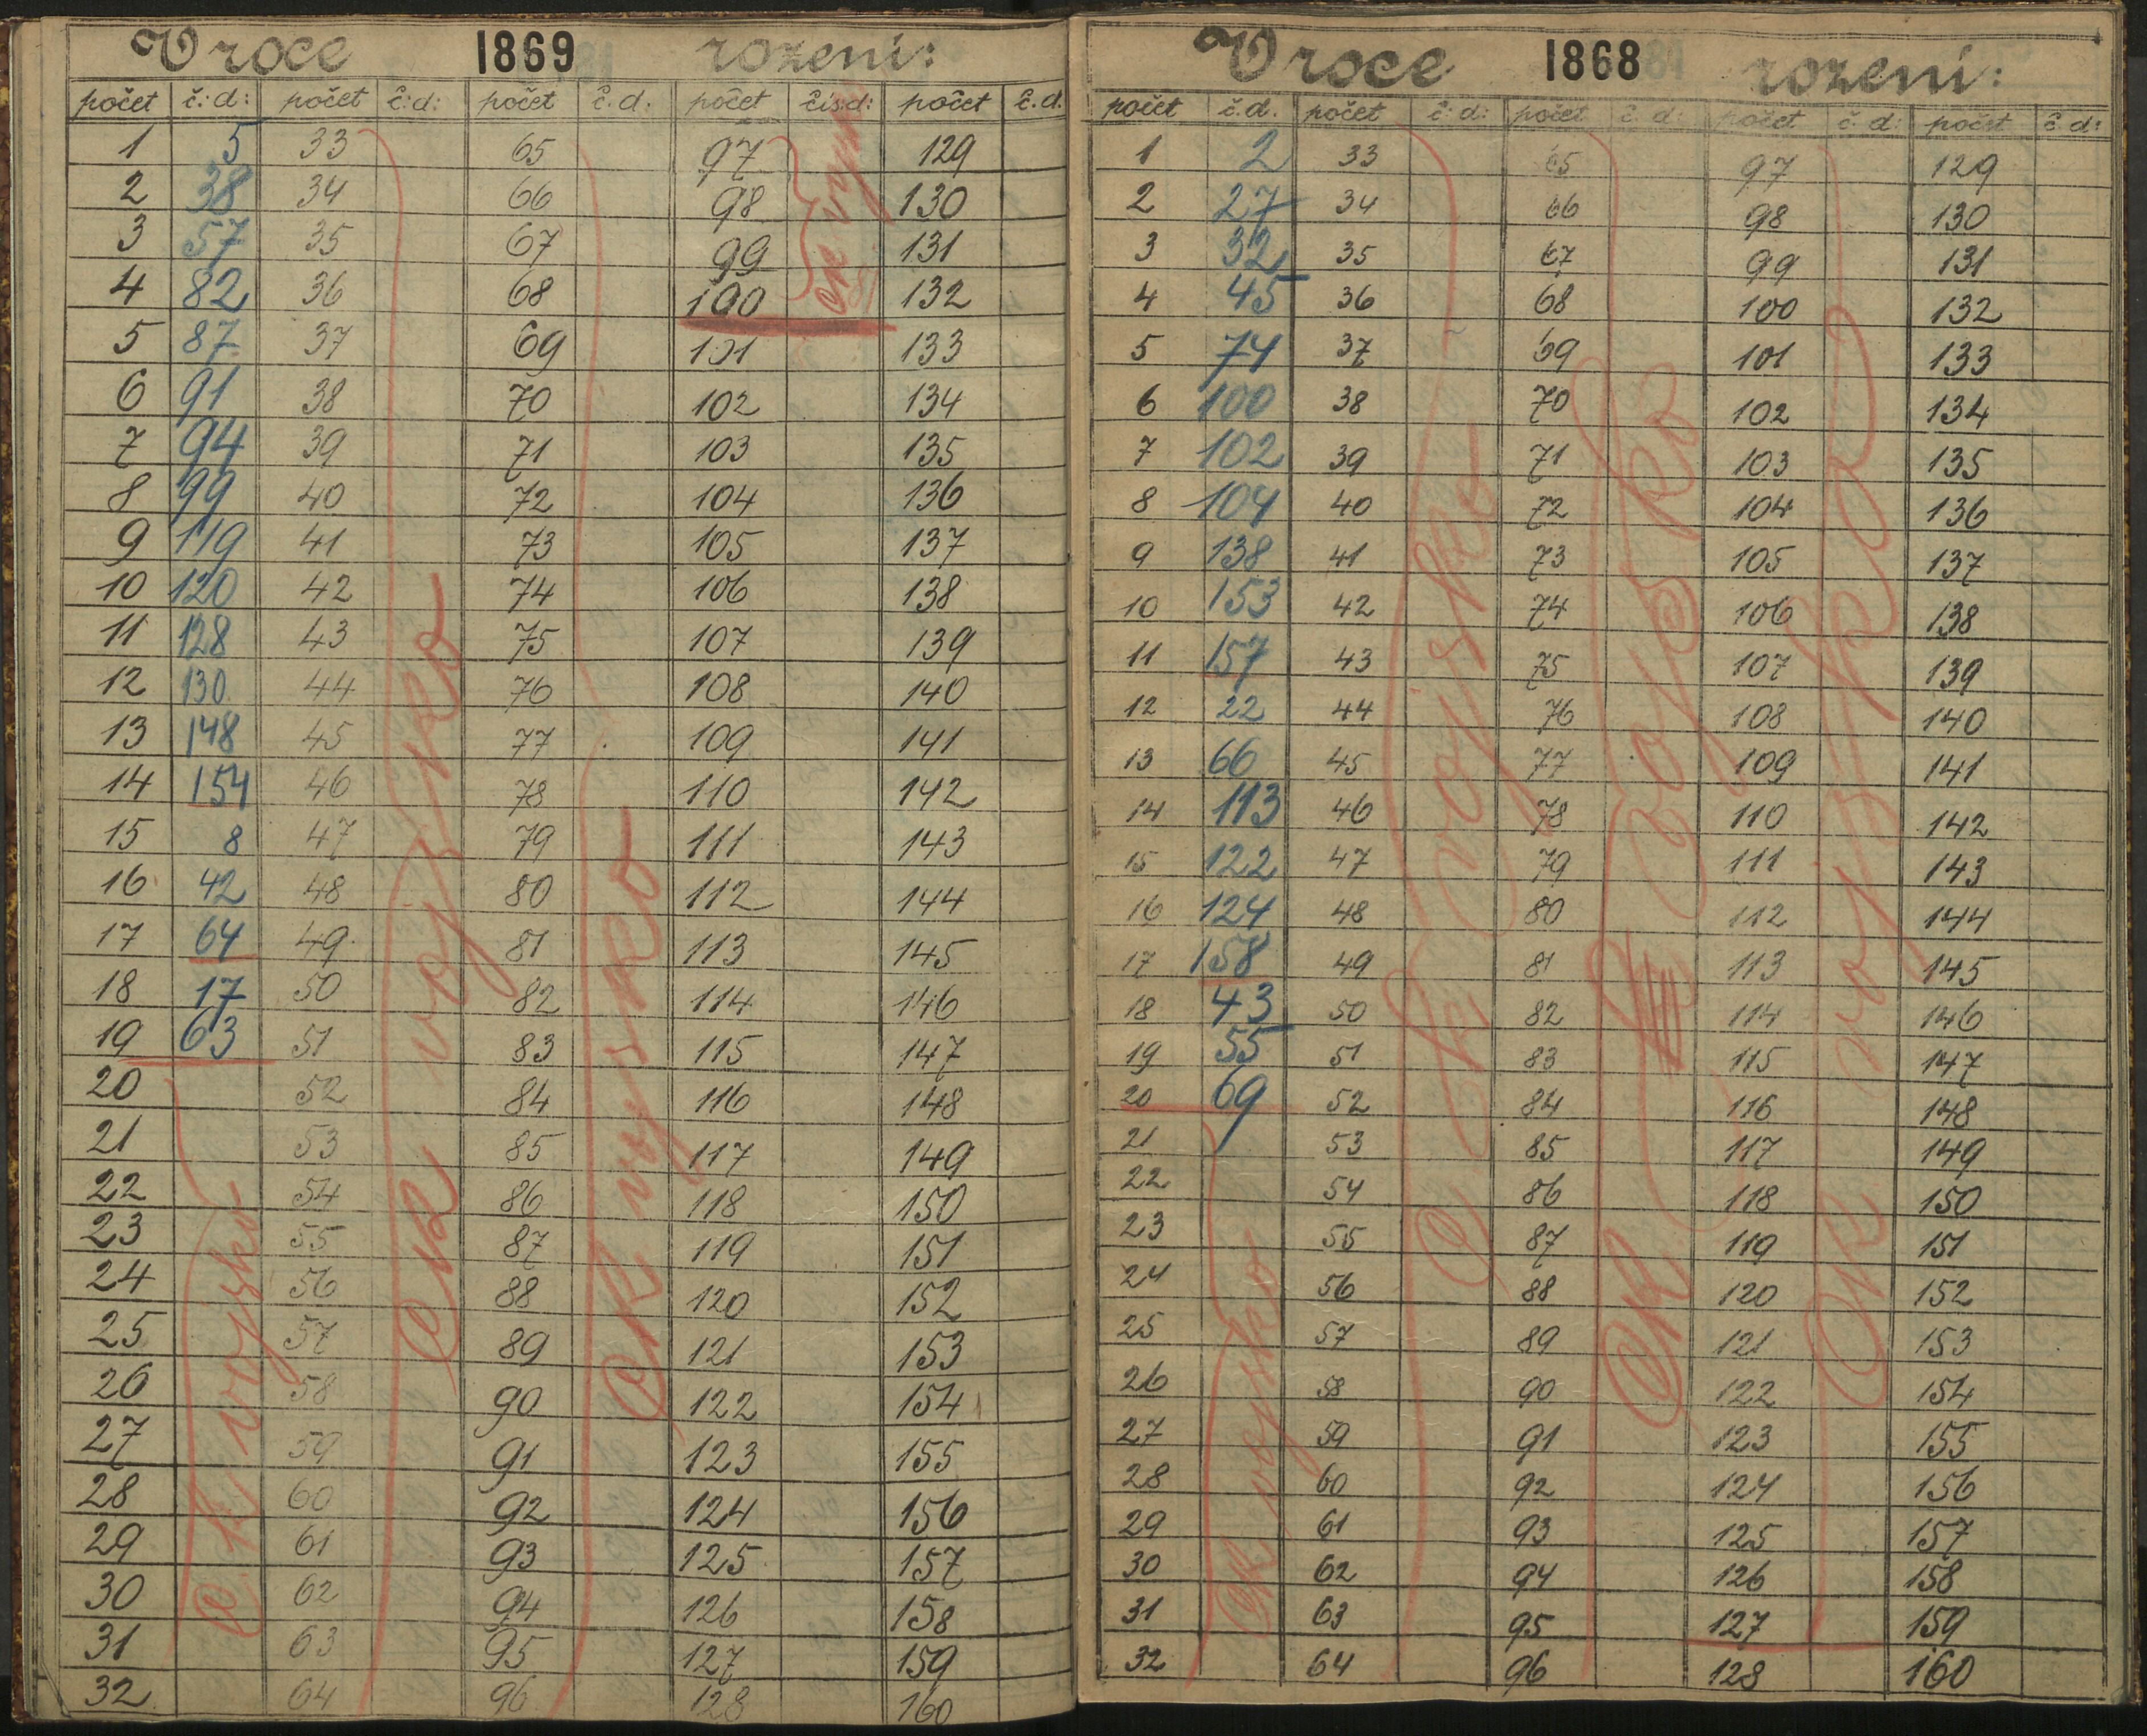 V roce 1869 rozeni:
počet č.:d: počet č:d: počet č.d: počet čís:d: počet č.d.
1 5 33 65 97 129
2 38 34 66 98 130
3 57 35 67 99 131
4 82 36 68 100 132
5 87 37 69 101 133
6 91 38 70 102 134
7 94 39 71 103 135
8 99 40 72 104 136
9 119 41 73 105 137
10 120 42 74 106 138
11 128 43 75 107 139
12 130 44 76 108 140
13 148 45 77 109 141
14 154 46 78 110 142
15 8 47 79 111 143
16 42 48 80 112 144
17 64 49 81 113 145
18 17 50 82 114 146
19 63 51 83 115 147
20 52 84 116 148
21 53 85 117 149
22 54 86 118 150
23 55 87 119 151
24 56 88 120 152
25 57 89 121 153
26 58 90 122 154
27 59 91 123 155
28 60 92 124 156
29 61 93 125 157
30 62 94 126 158
31 63 95 127 159
32 64 96 128 160
ck vojsko
ck vojsko
ck vojsko
ck
V roce 1868 rozeni:
počet č.d. počet č:d: počet č:d: počet č:d: počet č:d:
1 2 33 65 97 129
2 27 34 66 98 130
3 32 35 67 99 131
4 45 36 68 100 132
5 74 37 69 101 133
6 100 38 70 102 134
7 102 39 71 103 135
8 104 40 72 104 136
9 138 41 73 105 137
10 153 42 74 106 138
11 157 43 75 107 139
12 22 44 76 108 140
13 66 45 77 109 141
14 113 46 78 110 142
15 122 47 79 111 143
16 124 48 80 112 144
17 158 49 81 113 145
18 43 50 82 114 146
19 55 51 83 115 147
20 69 52 84 116 148
21 53 85 117 149
22 54 86 118 150
23 55 87 119 151
24 56 88 120 152
25 57 89 121 153
26 58 90 122 154
27 59 91 123 155
28 60 92 124 156
29 61 93 125 157
30 62 94 126 158
31 63 95 127 159
32 64 96 128 160
ck vojsko
c k vojsko
ck vojsko
ck vojsko